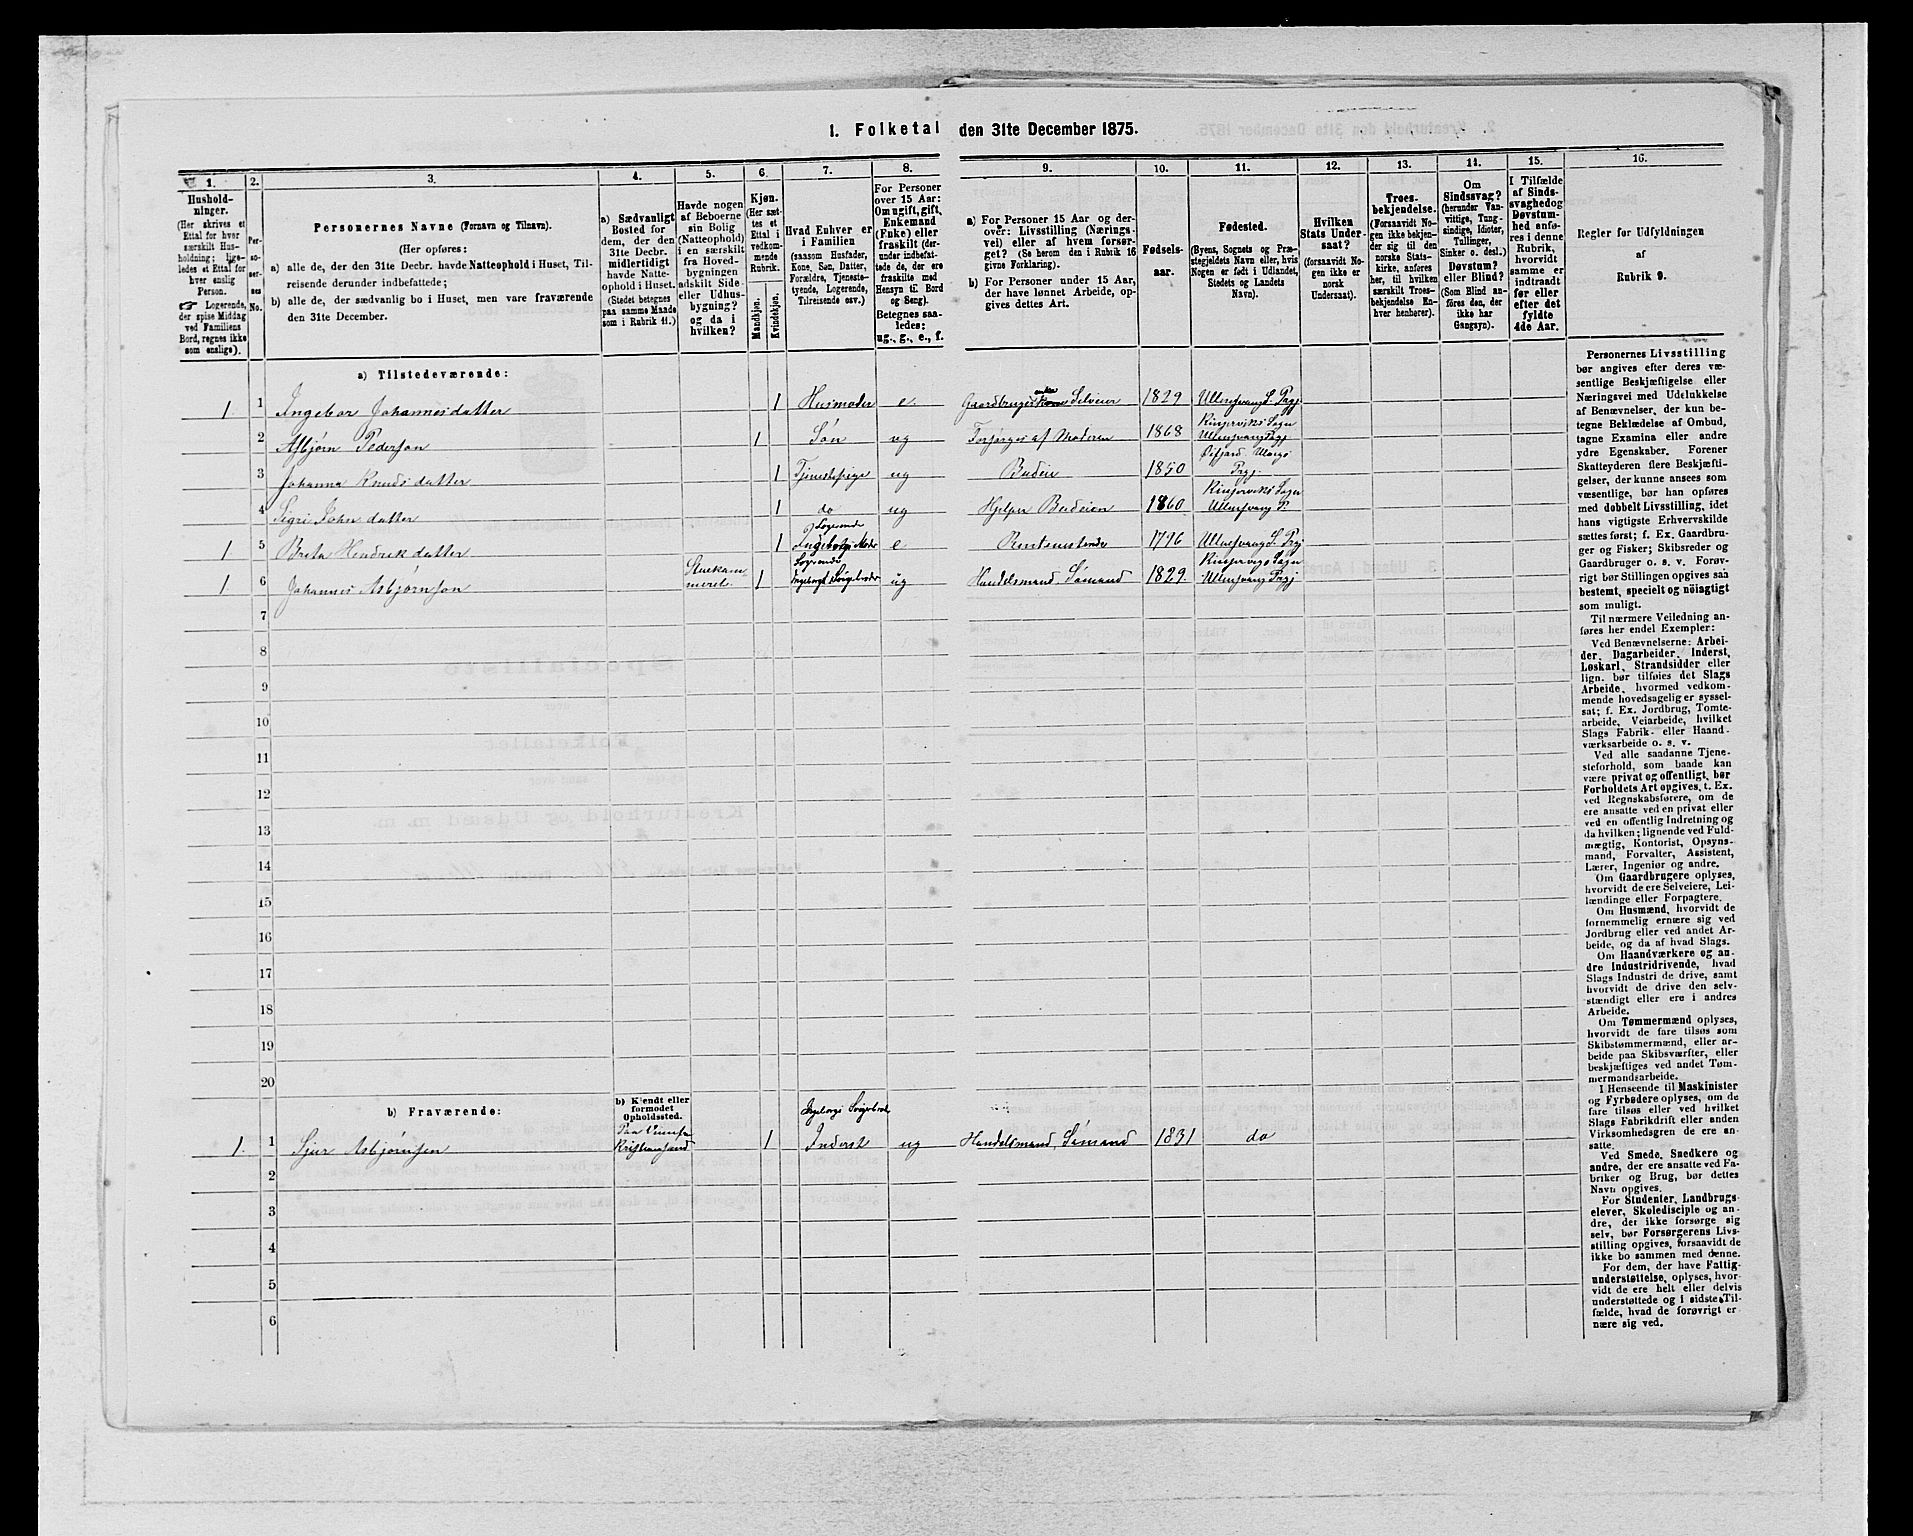 1. Folketal den 31te December 1875.
1. 2. 3. 4. 5. 6. 7. 8. 9. 10. 11. 12. 13. 14. 15. 16.
Hushold-
ninger.
(Her skrives et
Ettal for hver
særskilt Hus-
holdning; lige-
ledes et Ettal for
hver enslig
Person.
☞ Logerende,
der spise Middag
ved Familiens
Bord, regnes ikke
som enslige).
Per-
so-
ner-
nes
No.
Personernes Navne (Fornavn og Tilnavn).
(Her opføres:
a) alle de, der den 31te Decbr. havde Natteophold i Huset, Til-
reisende derunder indbefattede;
b) alle de, der sædvanlig bo i Huset, men vare fraværende
den 31te December.
a) Sædvanligt
Bosted for
dem, der den
31te Decbr.
midlertidigt
havde Natte-
ophold i Huset.
(Stedet betegnes
paa samme Maade
som i Rubrik 11.)
Havde nogen
af Beboerne
sin Bolig
(Natteophold)
i en særskilt
fra Hoved-
bygningen
adskilt Side-
eller Udhus-
bygning?
og da i
hvilken?
Kjøn.
(Her sæt-
tes et
Ettal i
vedkom-
mende
Rubrik.
Mandkjøn.
Kvindekjøn.
Hvad Enhver er
i Familien
(saasom Husfader,
Kone, Søn, Datter,
Forældre, Tjeneste-
tyende, Logerende,
Tilreisende osv.)
For Personer
over 15 Aar:
Om ugift, gift,
Enkemand
(Enke) eller
fraskilt (der-
under indbefat-
tede de, der ere
fraskilte med
Hensyn til Bord
og Seng).
Betegnes saa-
ledes:
ug., g., e., f.
a) For Personer 15 Aar og der-
over: Livsstilling (Nærings-
vei) eller af hvem forsør-
get? (Se herom den i Rubrik 16
givne Forklaring).
b) For Personer under 15 Aar,
der have lønnet Arbeide, op-
gives dettes Art.
Fødsels-
aar.
Fødested.
(Byens, Sognets og Præ-
stegjeldets Navn eller, hvis
Nogen er født i Udlandet,
Stedets og Landets
Navn).
Hvilken
Stats Under-
saat?
(forsaavidt No-
gen ikke er
norsk
Undersaat).
Troes-
bekjendelse.
(Forsaavidt No-
gen ikke bekjen-
der sig til den
norske Stats-
kirke, anføres
her, til hvilken
særskilt Troes-
bekjendelse En-
hver henhører).
Om
Sindssvag?
(herunder Van-
vittige, Tung-
sindige, Idioter,
Tullinger,
Sinker o. desl.).
Døvstum?
eller Blind?
(Som Blind an-
føres den, der
ikke har
Gangsyn).
I Tilfælde
af Sinds-
svaghed og
Døvstum-
hed anfø-
res i denne
Rubrik,
hvorvidt
samme er
indtraadt
før eller
efter det
fyldte
4de Aar.
Regler for Udfyldningen
af
Rubrik 9.
a) Tilstedeværende:
1 1 Ingebor Johannesdatter 1 Husmoder e. Gaardbrugerenke Selveier 1829 Ullensvang S. Prgj
2 Asbjørn Pederson 1 Søn ug Forsørges af Moderen 1868 Kinservik Sogn Ullensvang Prgj
3 Johanna Knudsdatter 1 Tjenestepige ug Budeie 1850 Prgj
4 Sigri Johndatter 1 do ug Hjelper Budeien 1860 Kinservik Sogn Ullensvang P.
1 5 Brita Hendrekdatter 1 Logerende Ingeborgs Moder e 1796 Ullensvang S. Prgj
1. 6 Johannes Asbjørnson Stuekammeret. 1 Logerende Ingeborgs Svigebroder ug Handelsmand Sømand 1829. Kinservigs Sogn Ullensvang Prgj
7
8
9
10
11
12
13
14
15
16
17
18
19
20
b) Fraværende:
b) Kjendt eller
formodet
Opholdssted.
1. 1 Sjur Asbjørnsen Kristiansand 1 Ingeborgs Svigebrod. Inderst ug Handelsmand, Sømand 1831 do
2
3
4
5
6
Personernes Livsstilling
bør angives efter deres væ-
sentlige Beskjæftigelse eller
Næringsvei med Udelukkelse
af Benævnelser, der kun be-
tegne Beklædelse af Ombud,
tagne Examina eller andre
ydre Egenskaber. Forener
Skatteyderen flere Beskjæfti-
gelser, der kunne ansees som
væsentlige, bør han opføres
med dobbelt Livsstilling, idet
hans vigtigste Erhvervskilde
sættes først; f. Ex. Gaardbru-
ger og Fisker; Skibsreder og
Gaardbruger o. s. v. Forøv-
rigt bør Stillingen opgives saa
bestemt, specielt og nøiagtigt
som muligt.
Til nærmere Veiledning an-
føres her endel Exempler:
Ved Benævnelserne: Arbei-
der, Dagarbeider, Inderst,
Løskarl, Strandsidder eller
lign. bør tilføies det Slags
Arbeide, hvormed vedkom-
mende hovedsagelig er syssel-
sat; f. Ex. Jordbrug, Tomte-
arbeide, Veiarbeide, hvilket
Slags Fabrik- eller Haand-
værksarbeide o. s. v.
Ved alle saadanne Tjene-
steforhold, som baade kan
være privat og offentligt, bør
Forholdets Art opgives, t. Ex.
ved Regnskabsførere, om de
ere ansatte ved en privat eller
ved en offentlig Indretning og
da hvilken; lignende ved Fuld-
mægtig, Kontorist, Opsyns-
mand, Forvalter, Assistent,
Lærer, Ingeniør og andre.
Om Gaardbrugere oplyses,
hvorvidt de ere Selveiere, Lei-
lændinge eller Forpagtere.
Om Husmænd, hvorvidt de
fornemmelig ernære sig ved
Jordbrug eller ved andet Ar-
beide, og da af hvad Slags.
Om Haandværkere og an-
dre Industridrivende, hvad
Slags Industri de drive, samt
hvorvidt de drive den selv-
stændigt eller ere i andres
Arbeide.
Om Tømmermænd oplyses,
hvorvidt de fare tilsøs som
Skibstømmermænd, eller ar-
beide paa Skibsværfter, eller
beskjæftiges ved andet Tøm-
mermandsarbeide.
I Henseende til Maskinister
og Fyrbødere oplyses, om de
fare tilsøs eller ved hvilket
Slags Fabrikdrift eller anden
Virksomhedsgren de ere an-
satte
Ved Smede, Snedkere og
andre, der ere ansatte ved Fa-
briker og Brug, bør dettes
Navn opgives.
For Studenter, Landbrugs-
elever, Skoledisciple og an-
dre, der ikke forsørge sig
selv, bør Forsørgerens Livs-
stilling opgives, forsaavidt de
ikke bo sammen med denne.
For dem, der have Fattig-
understøttelse, oplyses, hvor-
vidt de ere helt eller delvis
understøttede og i sidste Til-
fælde, hvad de forøvrigt er
nære sig ved.